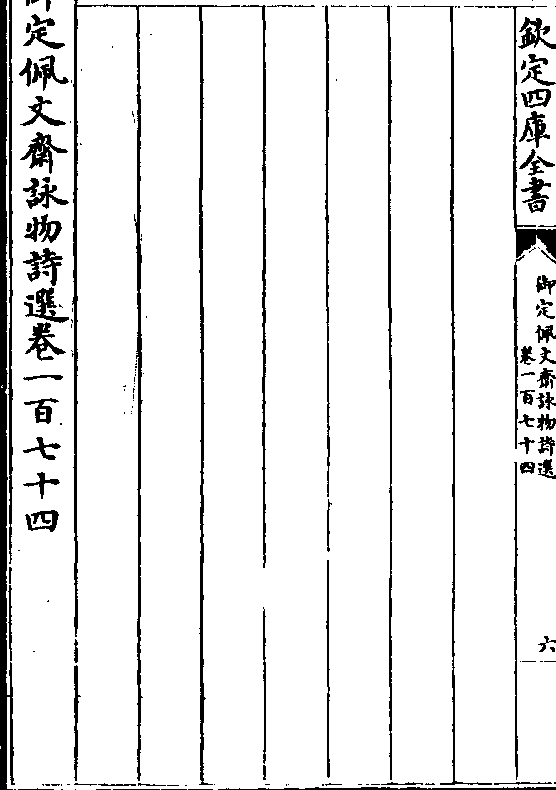 欽定四庫全書
御定佩文齋詠物詩選
卷一百七十四
六
御定佩文齋詠物詩選卷一百七十四